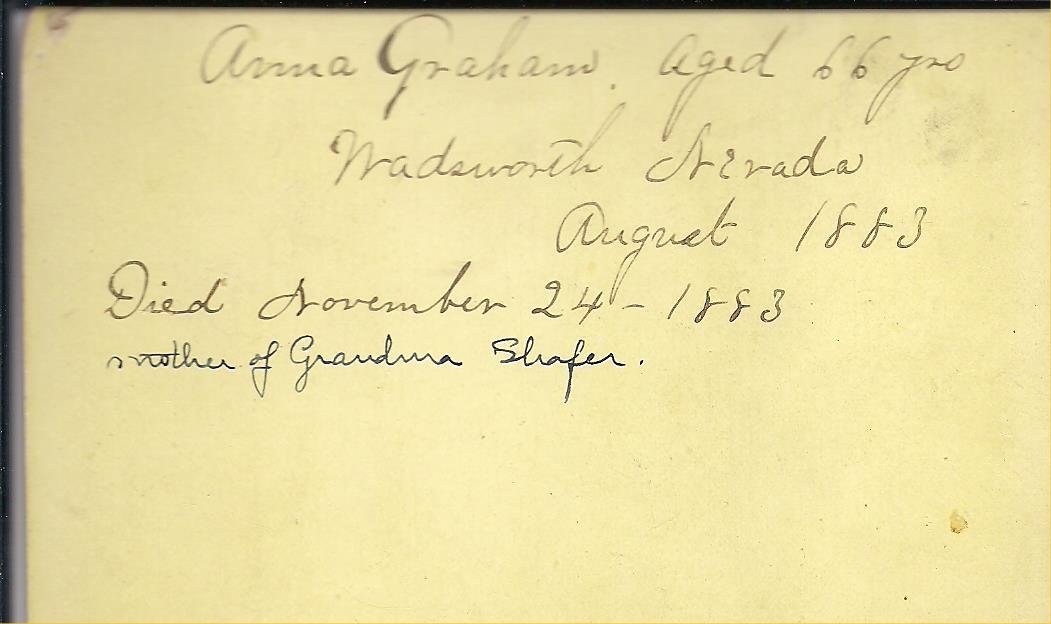 Anna Graham. Aged 66 yrs
Wadsworth Nevada
August 1883
Died November 24 - 1883
mother of Grandma Shafer.